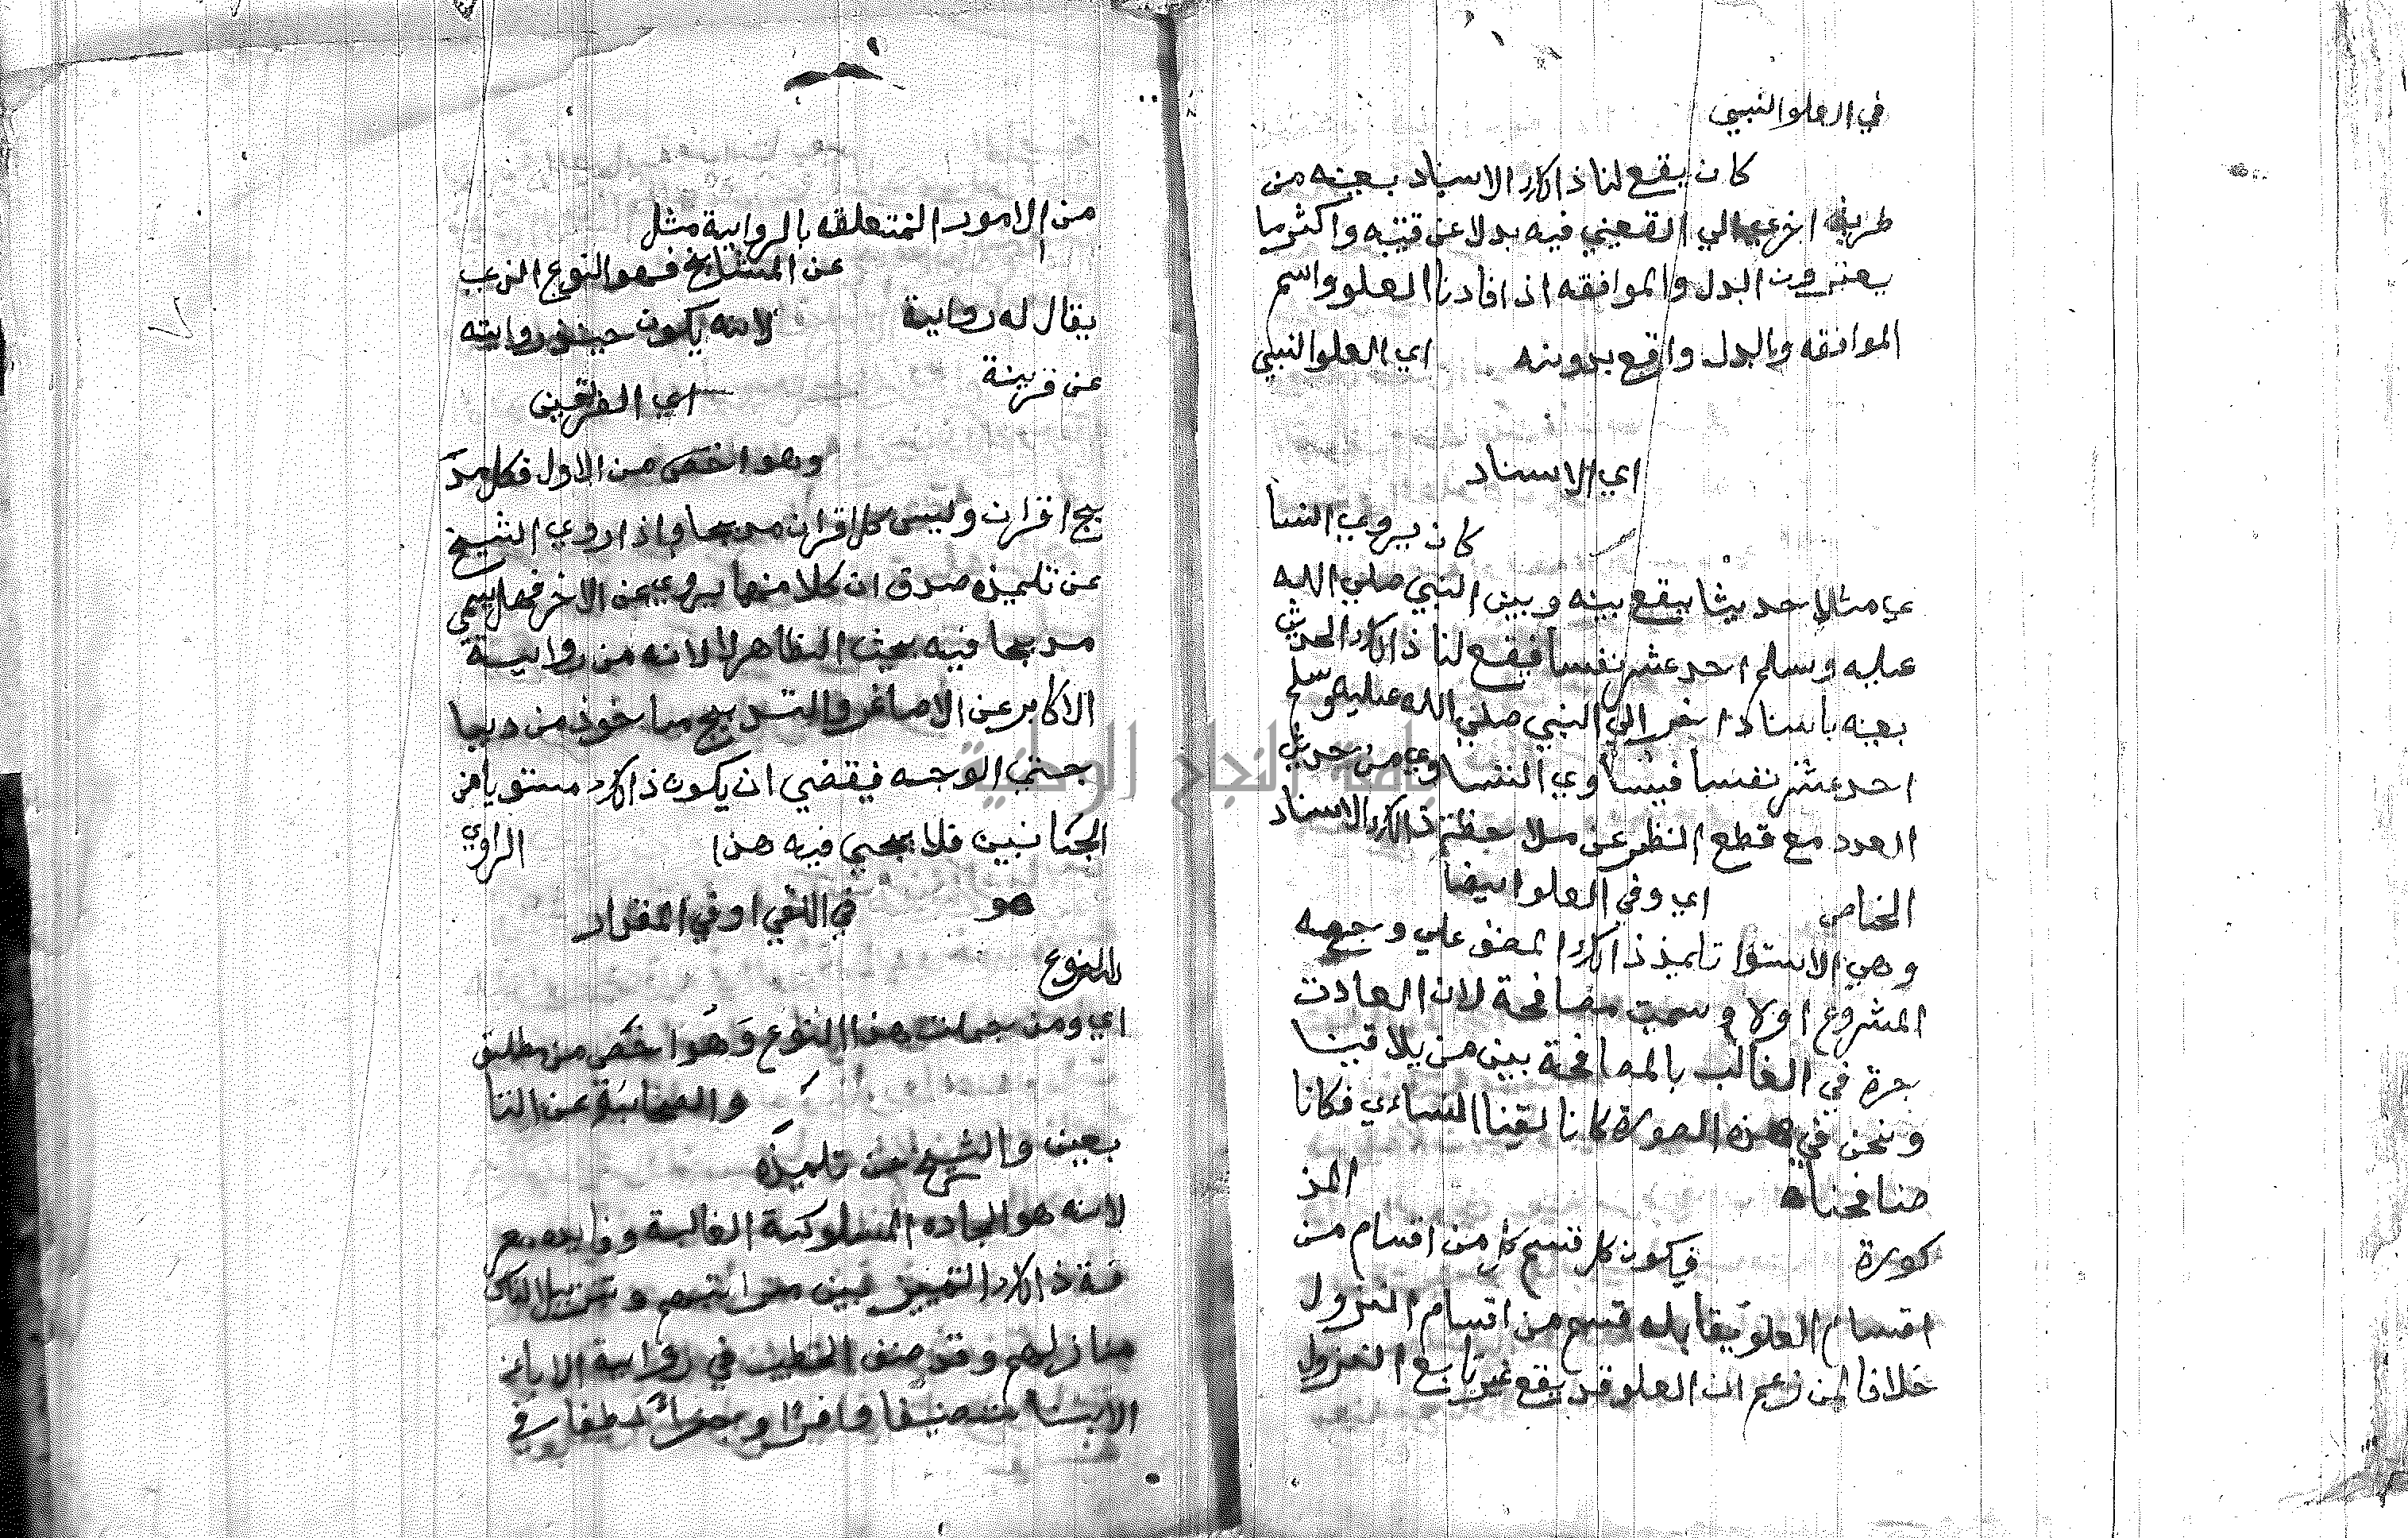 في العلو النسبي
كان يقع لنا ذالك الاسناد بعينه من
طريق اخرعي الي القعني فيه بدلا عن قتيبه واكثر ما
يعتبرون البدل والموافقه اذ افادنا العلو واسم
الموافقه والبدل واقع بدونه اي العلو النسبي
اي الاسناد
كان يروي النسأ
عي مثلا حديثا يقع بينه وبين النبي صلي الله
عليه وسلم احد عشر نفسا فيقع لنا ذالك الحديث
بعينه باسناد اخر الي النبي صلي الله عليه وسلم
احد عشر نفسا فيساوي النساوي من حديث
العدد مع قطع النظر عن ملاحظة ذالك الاسناد
الخاص اي وفي العلو ايضا
وهي الاستوا تلميذ ذالك المصنف علي وجهه
المشروع اولا وسميت مصافحة لان العادت
جرة في الغالب بالمصافحة بين من يلاقينا
ونحن في هذه الصورة كانا لقينا النساءي فكانا
صافحناه المذ
كورة فيكون كل قسم كل من اقسام من
اقسام العلو يقابله قسم من اقسام النزول
خلافا لمن زعم ان العلو قد يقع غير تابع النزول
من الامور المتعلقه بالرواية مثل
عن المشايخ فهو النوع الذي
يقال له رواية لانه يكون حينئذ روايته
عن قرينة اي القرينين
وهو اخص من الاول فكل مد
بج اقران وليس كل اقران مدبجا واذا روي الشيخ
عن تلميذه صدق ان كلا منهما يروي عن الاخر فهل يسمي
مدبجا فيه بحث الظاهر لا لانه من رواية
الاكابر عن الاصاغر والتدبيج ماخوذ من ديبا
جتي الوجه فيقضي ان يكون ذالك مستويا من
الجانبين فلا يجي فيه هذا الراوي
هو في اللقي او في المقدار
النوع
اي ومن جملت هذا النوع وهو اخص من مطلق
والصحابة عن التا
بعين والشيخ عن تلميذه
لانه هو الجاده المسلوكة الغالبة وفايده معر
فة ذالك التمييز بين مراتبهم وتنزيل الناس
منازلهم وقد صنف الخطيب في رواية الاباء عن
الابناء تصنيفا وافرد جزءا لطفا في